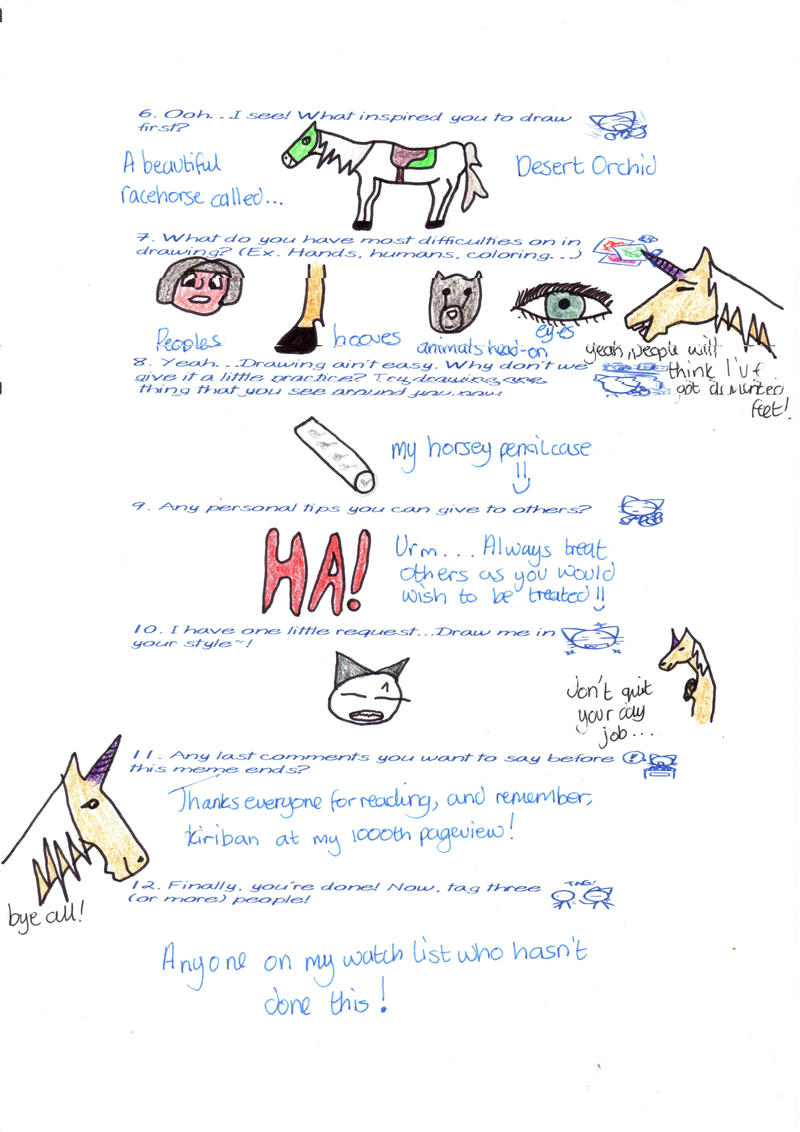 6. Ooh...I see! What inspired you to draw
first?
A beautiful
racehorse called...
Desert Orchid
7. What do you have most difficulties on in
drawing? (Ex. Hands, humans, coloring...)
Peoples
hooves
animals head-on
eyes
yeah, people will
think I've
got
feet!
8. Yeah...Drawing ain't easy. Why don't we
give it a little practice? Try drawing one
thing that you see around you now!
my horsey pencilcase
9. Any personal tips you can give to others?
HA!
Urm... Always treat
others as you would
wish to be treated!!
10. I have one little request...Draw me in
your style~!
don't quit
your day
job....
11. Any last comments you want to say before
this meme ends?
Thanks everyone for reading, and remember,
kiriban at my 1000th pageview!
bye all!
12. Finally, you're done! Now, tag three
(or more) people!
TAG!
Anyone on my watch list who hasn't
done this!